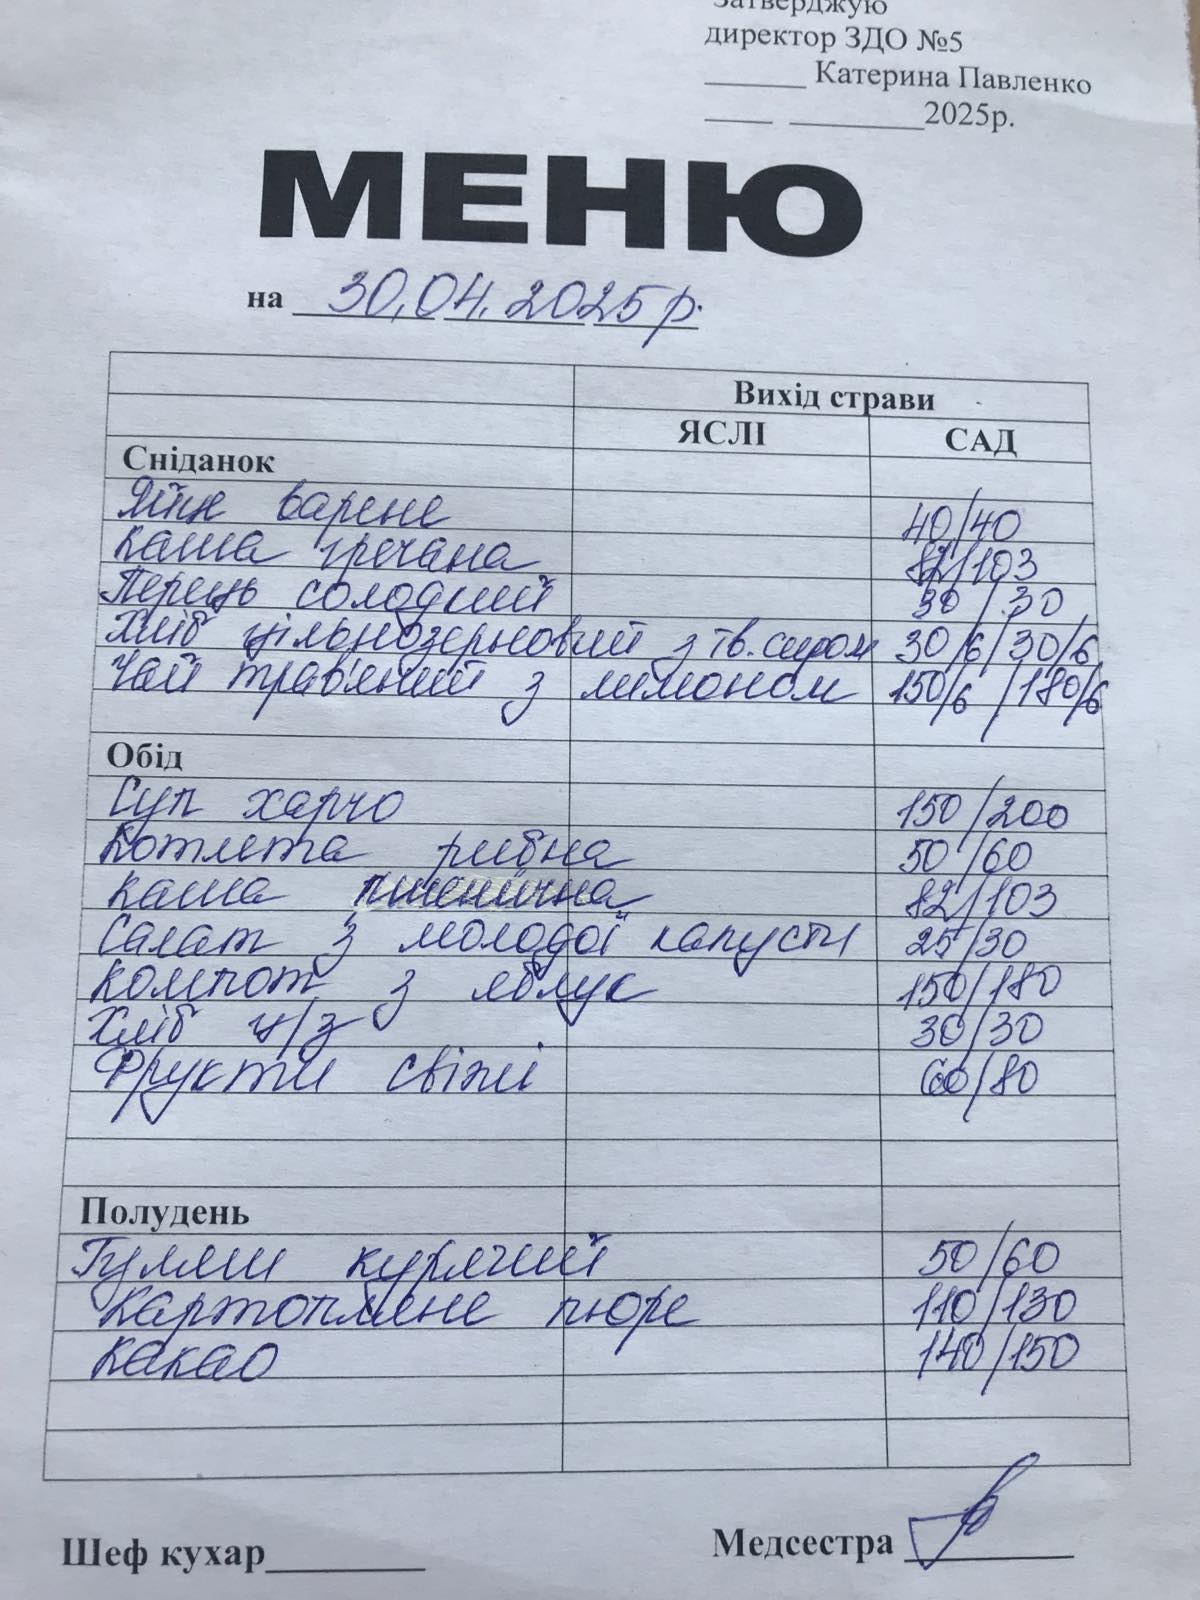 Затверджую
директор ЗДО №5
______ Катерина Павленко
____ ________2025р.
МЕНЮ
на 30.04.2025 р.
Вихід страви
ЯСЛІ САД
Сніданок
Яйце варене 40/40
Каша гречана 82/103
Перець солодкий 30/30
Хліб цільнозерновий з тв. сиром 30/6/30/6
Чай трав'яний з лимоном 150/6/180/6
Обід
Суп харчо 150/200
Котлета рибна 50/60
Каша пшенична 82/103
Салат з молодої капусти 25/30
Компот з яблук 150/180
Хліб ц/з 30/30
Фрукти свіжі 60/80
Полудень
Гуляш курячий 50/60
Картопляне пюре 110/130
Какао 140/150
Шеф кухар________ Медсестра ________